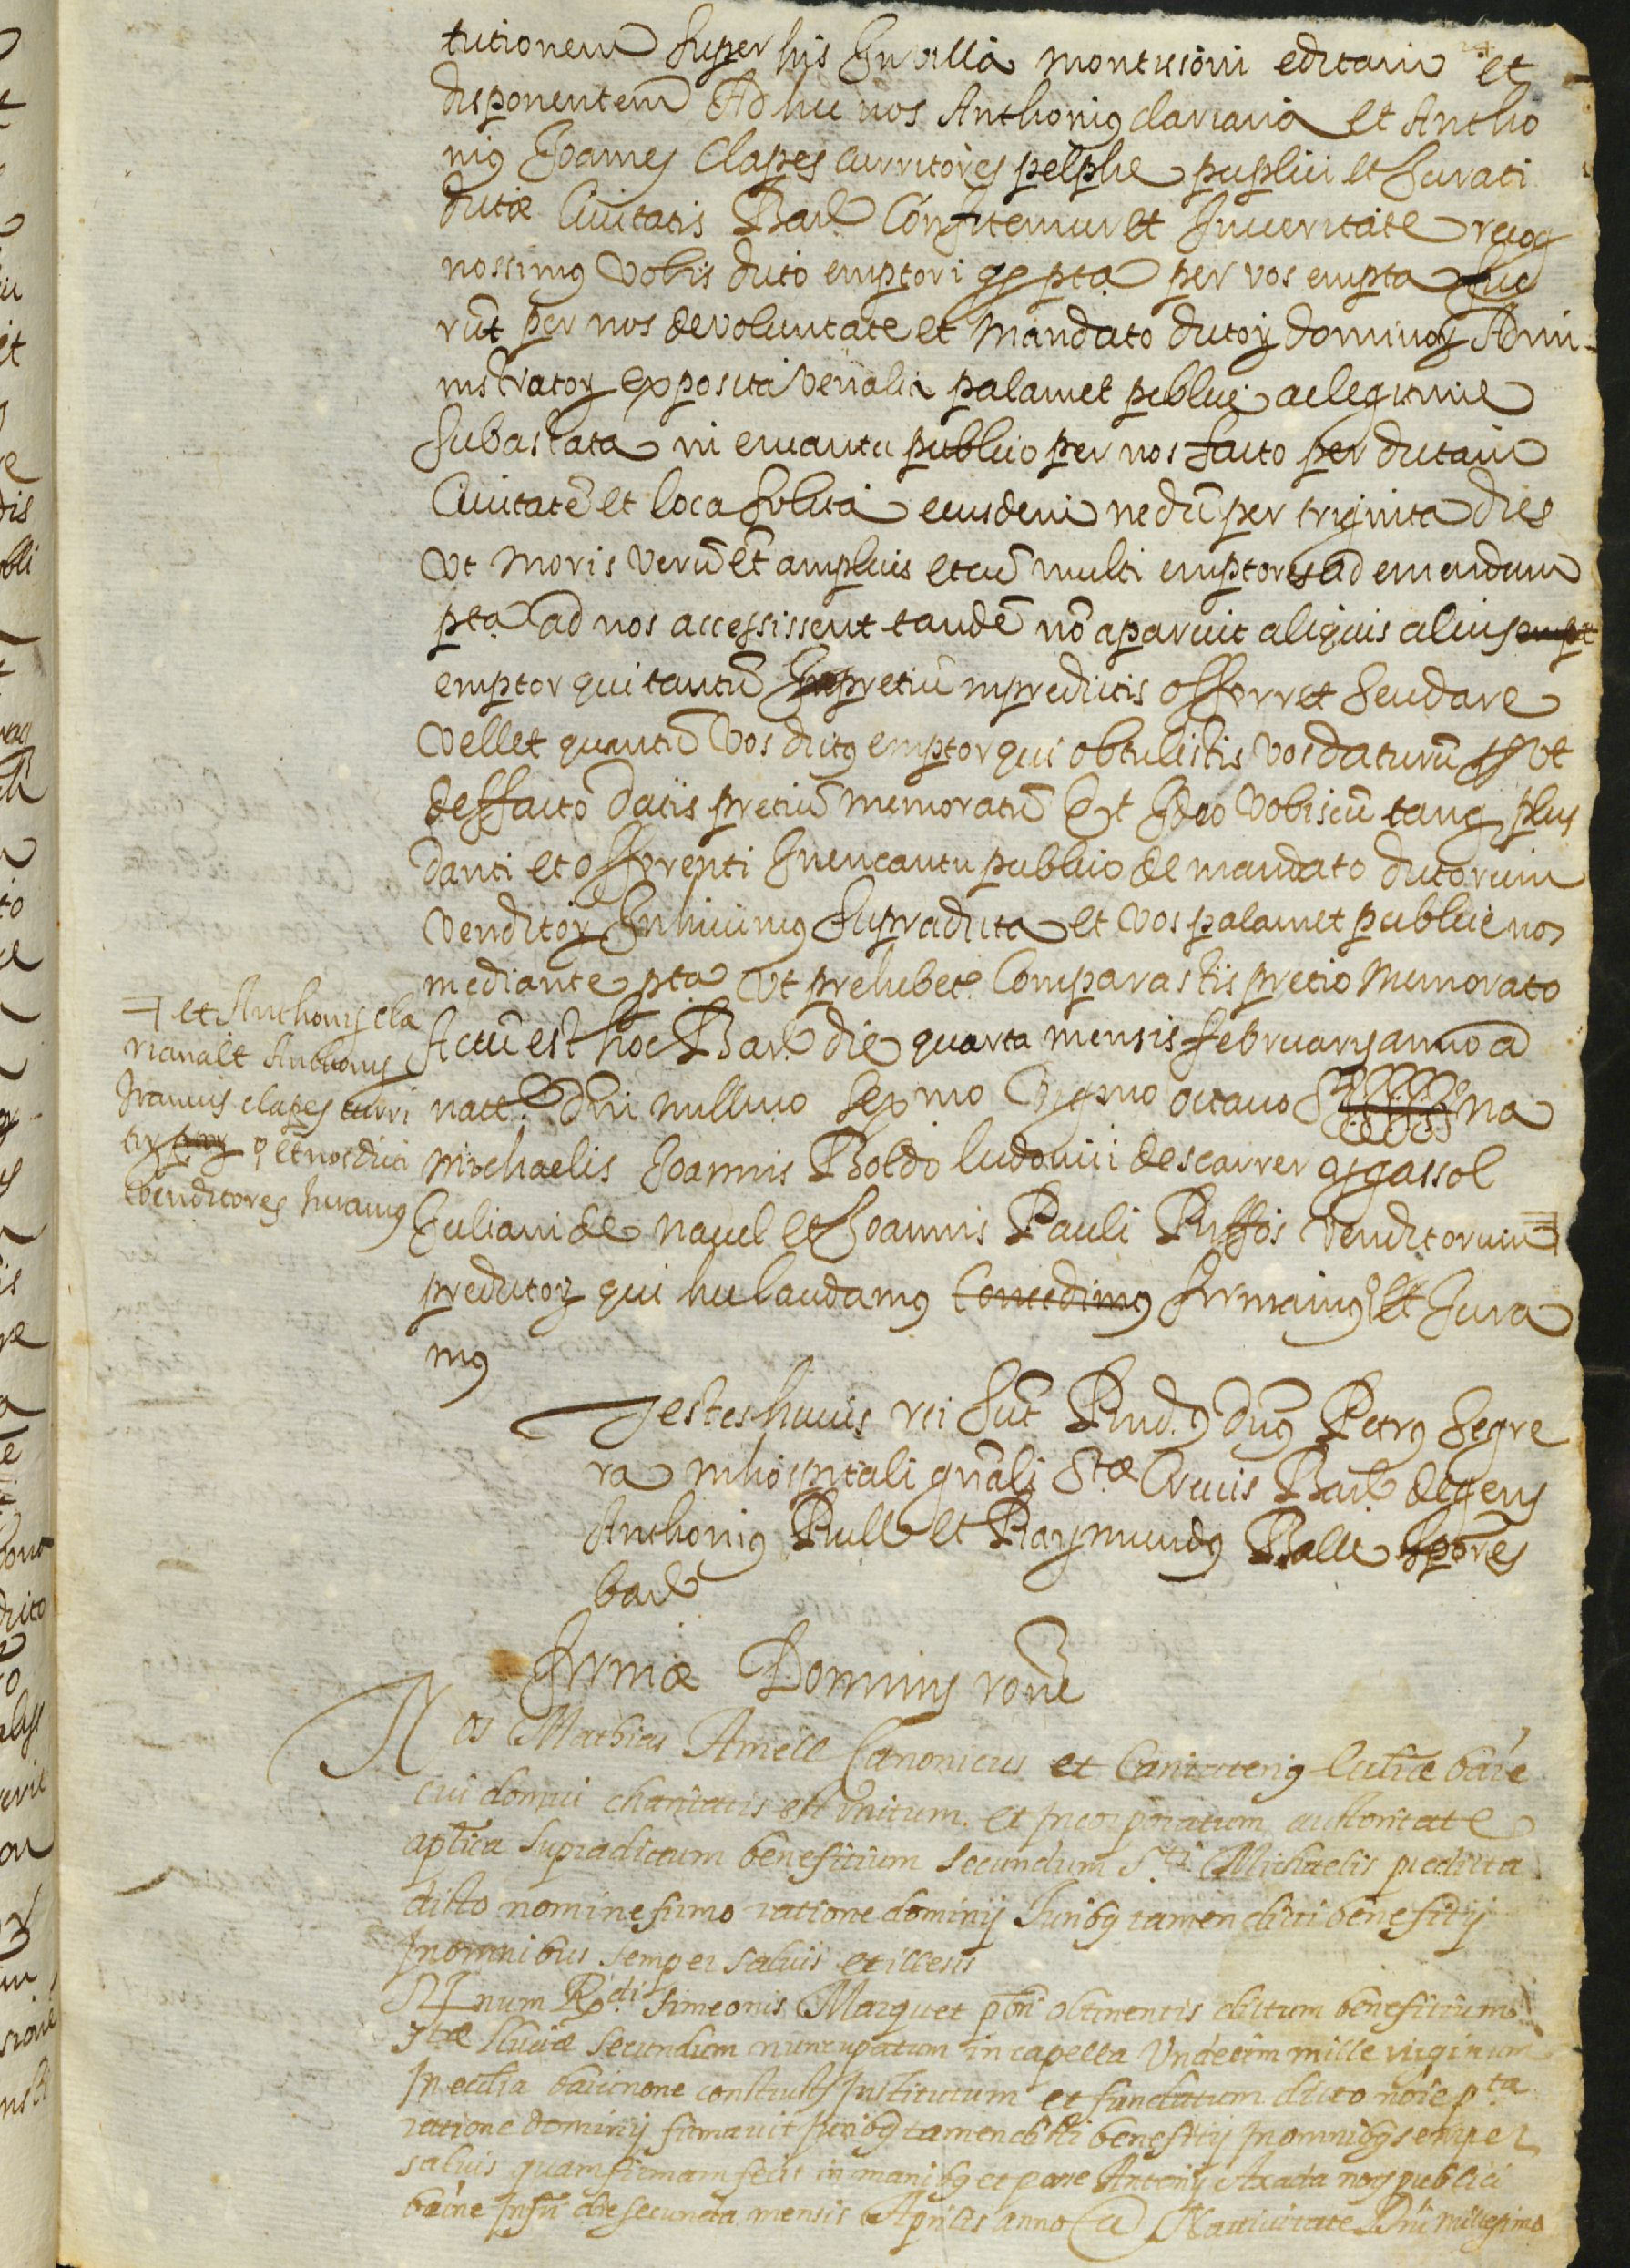 tutionem super his In villa montissoni editam et
disponentem Ad hec nos Anthonius clariana et Antho
nius Joannes Clapes curritores publici et Jurati
dicte Civitatis Barc. Confitemur et In veritate recog
nossimus vobis dicto emptori pta per vos empta fue
rũt per nos de voluntate et mandato dictoꝝ dominoꝝ Admi-
nistratoꝝ exposita venalia palam et publice ac legitime
subastata in encantu publico per nos facto per dictam
Civitatẽ et loca solita eiusdem nedũ per triginta dies
vt moris verũ et amplius et cũ multi emptores ad emendum
pta ad nos accessissent tandẽ nõ aparuit aliquis alius empt
emptor qui tantũ pretiũ in predictis offerret seu dare
vellet quantũ vos dictus emptor qui obtulistis vos daturũ vt
de ffacto datis pretiũ memoratũ Et Ideo vobis cũ tanq plus
danti et offerenti In encantu publico de mandato dictorum
venditoꝝ supradicta et vos palam et publice nos
mediante pta vt prehibet Comparastis pretio memorato
Actũ est hoc Barc. die quarta mensis februarij anno a
nat. dñi millmo sexmo vigmo octavo na
michaelis Joannis Boldo ludovici descarrer gassol
Juliani de navel et Joannis Pauli Puffos venditorum
predictoꝝ qui hec laudamus concedimus firmamus et Jura
mus
et Anthonij cla
riana et Anthonij
Joannis clapes curri
et nos dicti
venditores Juramus
Testes huius rei sũt Rnd.us dñus Petrus Segre
ra in hospitali gñali Stæ Crucis Barc. degens
Anthonius Rull et Raymundus Balle
barc.
Firmæ Dominij rone
Nos Mathias Amell Canonicus et
cui domui charitatis est vnitum et incorporatum auctoritate
aplica supradictum benefitium secundum Sti Michaelis predicta
dicto nomine firmo ratione dominij Juribus tamen dicti benefitij
In omnibus semper salvis et illesis
Rdi Simeonis Marquet obtinentis dictum benefitium
secundum nuncupatum in capella Undecim mille virginum
In Institutum et fundatum dicto noie pta
ratione dominij firmavit Juribus tamen dicti benefitij In omnibus semper
salvis quam firmam fecit in manibus et posse Antonij Axada noꝝ publici
die secunda mensis Aprilis anno a Nativitate Dñi millesimo